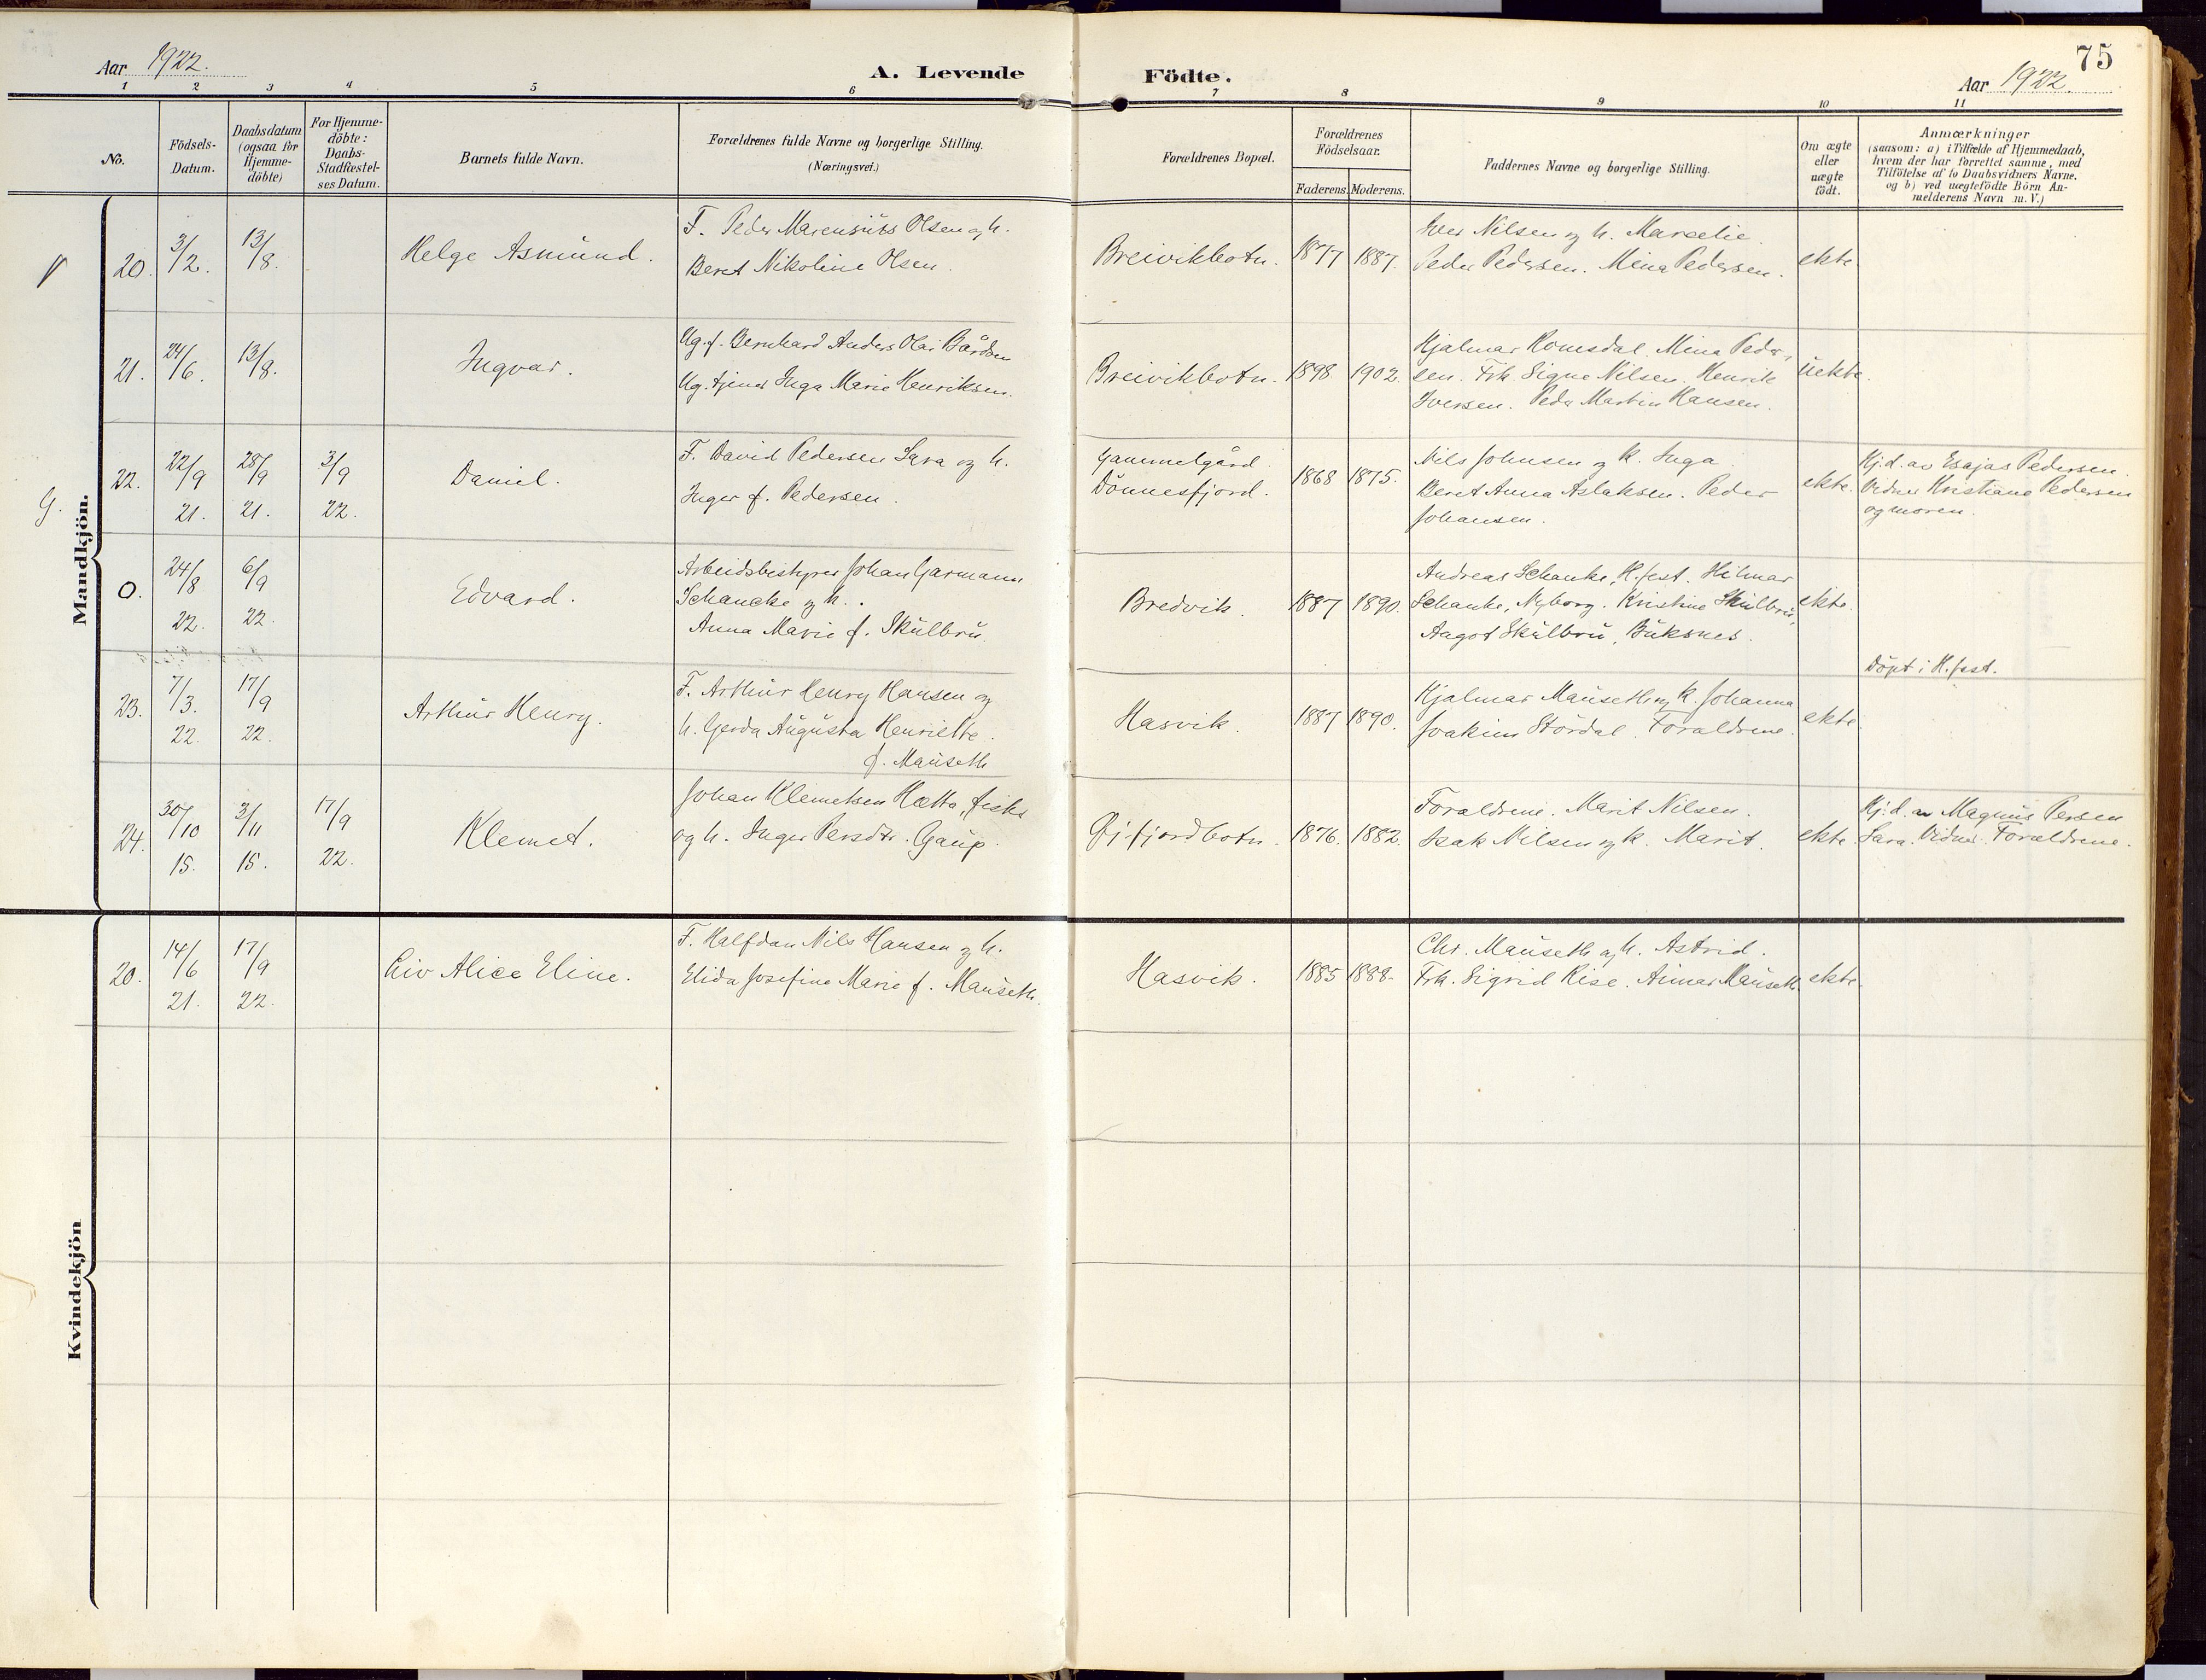 75
Aar 1922. A. Levende Födte. Aar 1922.
1 2 3 4 5 6 7 8 9 10 11
No.
Födsels-
Datum.
Daabsdatum
(ogsaa for
Hjemme-
döbte)
For Hjemme-
döbte:
Daabs-
Stadfæstel-
ses Datum.
Barnets fulde Navn.
Forældrenes fulde Navne og borgerlige Stilling.
(Næringsvei.)
Forældrenes Bopæl.
Forældrenes
Födselsaar.
Faderens. Moderens.
Faddernes Navne og borgerlige Stilling.
Om ægte
eller
uægte
födt.
Anmærkninger
(saasom: a) i Tilfælde af Hjemmedaab,
hvem der har forrettet samme, med
Tilföielse af to Daabsvidners Navne.
og b) ved uægtefödte Börn An-
melderens Navn m. V.)
Mandkjön.
20. 3/2. 13/8. Helge Asmund.
F. Peder Marensius Olsen og h.
Beret Nikoline Olsen.
Breivikbotn. 1877 1887.
Iver Nilsen og h. Marselie.
Peder Pedersen. Mina Pedersen.
ekte.
21. 24/6. 13/8. Ingvar.
Ug. f. Bernhard Anders Olai Bårdsen
Ug. tjener Inga Marie Henriksen.
Breivikbotn. 1898 1902.
Hjalmar Romsdal. Mina Peder-
sen. Frk. Signe Nilsen. Henrik
Iversen. Peder Martin Hansen.
uekte.
G.
22. 22/9 21. 28/9 21. 3/9 22. Daniel.
F. David Pedersen Sara og h.
Inger f. Pedersen.
Gammelgård
Dönnesfjord.
1868 1875.
Nils Johnsen og k. Inga
Beret Anna Aslaksen. Peder
Johansen.
ekte.
Hj.d. av Esajas Pedersen.
Vidner Kristiane Pedersen
og moren.
0. 24/8 22. 6/9 22. Edvard.
Arbeidsbestyrer Johan Garmann
Schancke og h..
Anna Marie f. Skulbru.
Bredvik. 1887 1890.
Andreas Schanke, H.fest. Hilmar
Schanke, Nyborg. Kristine Skulbru,
Aagot Skulbru, Buksnes.
ekte.
Döpt i H.fest.
23. 7/3. 22. 17/9 22. Arthur Henry.
F. Arthur Henry Hansen og
h. Gerda Augusta Henriette.
f. Mauseth
Hasvik. 1887 1890.
Hjalmar Mauseth og k. Johanna
Joakim Stördal. Foraldrene.
ekte
24. 30/10 15. 3/11 15. 17/9 22. Klemet.
Johan Klemetsen Hætta, fisker
og h. Inger Persdtr. Gaup.
Øjfjordbotn. 1876. 1882.
Foraldrene. Marit Nilsen.
Isak Nilsen og k. Marit.
ekte
Hj.d. av Magnus Persen
Sara. Vidner: Foraldrene.
Kvindekjön
20. 14/6 21. 17/9 22. Liv Alice Eline.
F. Halfdan Nils Hansen og h.
Elida Josefine Marie f. Mauseth.
Hasvik. 1885 1888.
Chr. Mauseth og h. Astrid.
Frk. Sigrid Rise. Einar Mauseth.
ekte.